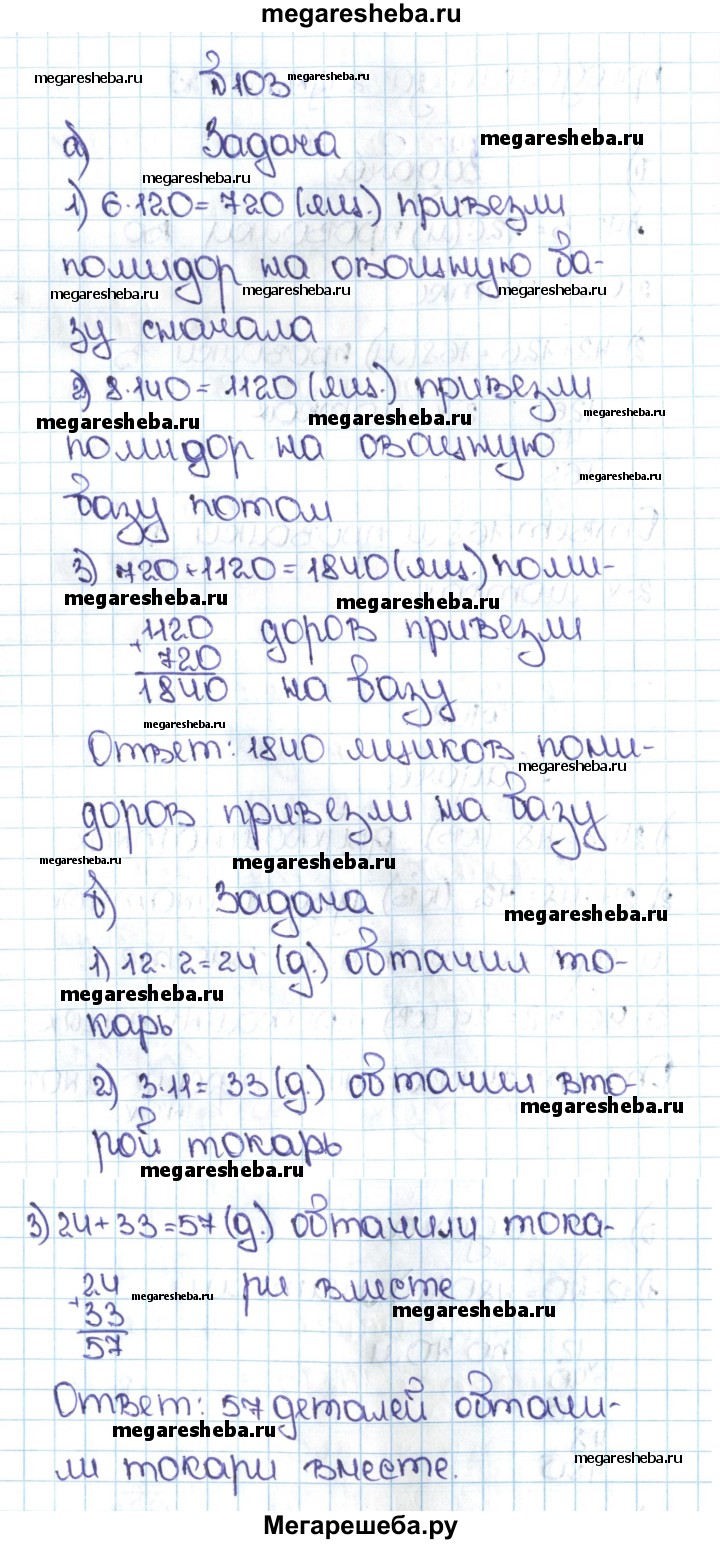 megaresheba.ru
megaresheba.ru
№103
megaresheba.ru
а) Задача
megaresheba.ru
megaresheba.ru
1) 6·120=720 (ящ.) привезли
помидор на овощную ба-
megaresheba.ru megaresheba.ru megaresheba.ru
зу сначала
2) 8·140=1120 (ящ.) привезли
megaresheba.ru megaresheba.ru megaresheba.ru
помидор на овощную
megaresheba.ru
базу потом
3) 720+1120=1840 (ящ.) поми-
megaresheba.ru megaresheba.ru
+1120 доров привезли
720
1840 на базу
megaresheba.ru
Ответ: 1840 ящиков поми-
megaresheba.ru
доров привезли на базу
megaresheba.ru megaresheba.ru
б) Задача
megaresheba.ru
1) 12·2=24 (д.) обтачил то-
megaresheba.ru
карь
2) 3·11=33 (д.) обтачил вто-
megaresheba.ru
рой токарь
megaresheba.ru
3) 24+33=57 (д.) обтачили тока-
+24 ри вместе
megaresheba.ru
33 megaresheba.ru
57
Ответ: 57 деталей обтачи-
megaresheba.ru
ли токари вместе.
megaresheba.ru
Мегарешеба.ру